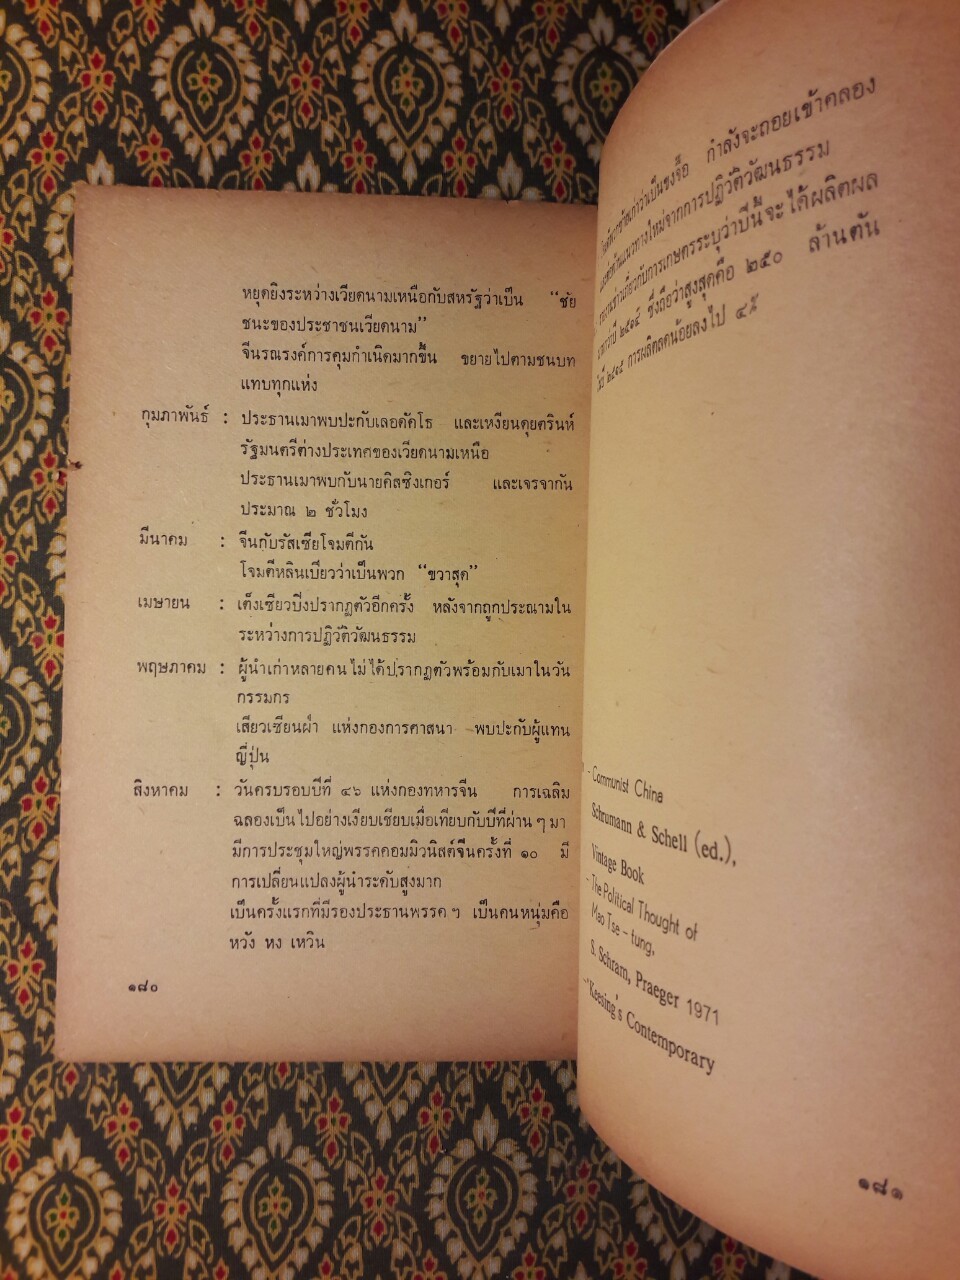 หยุดยิงระหว่างเวียดนามเหนือกับสหรัฐว่าเป็น “ชัย
ชนะของประชาชนเวียดนาม”
จีนรณรงค์การคุมกำเนิดมากขึ้น ขยายไปตามชนบท
แทบทุกแห่ง
กุมภาพันธ์ : ประธานเมาพบปะกับเลอดัคโธ และเหงียนดุยตรินห์
รัฐมนตรีต่างประเทศของเวียดนามเหนือ
ประธานเมาพบกับนายคิสซิงเกอร์ และเจรจากัน
ประมาณ ๒ ชั่วโมง
มีนาคม : จีนกับรัสเซียโจมตีกัน
โจมตีหลินเบียวว่าเป็นพวก “ขวาสุด”
เมษายน : เต็งเซียวบึงปรากฏตัวอีกครั้ง หลังจากถูกประณามใน
ระหว่างการปฏิวัติวัฒนธรรม
พฤษภาคม : ผู้นำเก่าหลายคนไม่ได้ปรากฏตัวพร้อมกับเมาในวัน
กรรมกร
เสียวเซียนฝ่า แห่งกองการศาสนา พบปะกับผู้แทน
ญี่ปุ่น
สิงหาคม : วันครบรอบปีที่ ๔๖ แห่งกองทหารจีน การเฉลิม
ฉลองเป็นไปอย่างเงียบเชียบเมื่อเทียบกับปีที่ผ่าน ๆ มา
มีการประชุมใหญ่พรรคคอมมิวนิสต์จีนครั้งที่ ๑๐ มี
การเปลี่ยนแปลงผู้นำระดับสูงมาก
เป็นครั้งแรกที่มีรองประธานพรรค ฯ เป็นคนหนุ่มคือ
หวัง หง เหวิน
๑๘๐
ว่าเป็นขงจื๊อ กำลังจะถอยเข้าคลอง
แนวทางใหม่จากการปฏิวัติวัฒนธรรม
เกี่ยวกับการเกษตรระบุว่าปีนี้จะได้ผลิตผล
๒๕๑๕ ซึ่งถือว่าสูงสุดคือ ๒๕๐ ล้านตัน
ปี ๒๕๑๕ การผลิตลดน้อยลงไป ๔%
- Communist China
Schrumann & Schell (ed.),
Vintage Book
- The Political Thought of
Mao Tse – tung,
S. Schram, Praeger 1971
- Keesing's Contemporary
๑๘๑